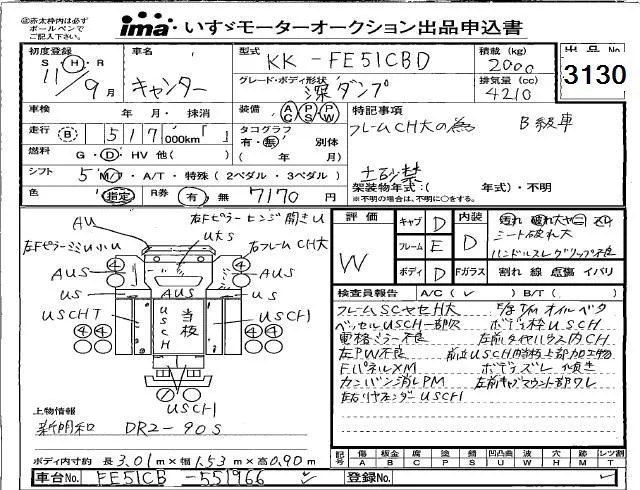 @赤太枠内は必ず
ボールペンで
ご記入下さい。
ima いすゞモーターオークション出品申込書
初度登録 S・H・R 11/9月
車名 キャンター
型式 KK-FE51CBD
積載(kg) 2000
出品No 3130
グレード・ボディ形状 深ダンプ
排気量(cc) 4210
車検 年・月・抹消
装備 AC PS PW
特記事項
フレームCH大の為 B級車
走行 B 517,000km「 」
タコグラフ 有・無 別体
( 年 月)
燃料 G・D・HV 他( )
シフト 5 M/T・A/T・特殊(2ペダル・3ペダル)
土砂禁
架装物年式:( 年式)・不明
※不明の場合は、不明に○をする。
色 指定 R券 有・無 7170円
評価 W
キャブ D
フレーム E
ボディ D
内装 D
Fガラス 割れ 線 点傷 イバリ
シート破れ大
検査員報告 A/C( ✓ ) B/T( )
フレームSCヤセ大
ベッセルUSCH一部穴 ボデー枠USCH
電格ミラー不良 左前タイヤハウス内CH
左PW不良
FパネルXM ボデーズレ
カンバン消しPM
AU
右Fピラーヒンジ開きU
UきS
左FピラーミゾU小U
右フレームCH大
④ ④
AUS AUS
US AUS US
USCHT USCH 当板 USCH
④ ④
USCH
上物情報
新明和 DR2-90S
ボディ内寸約 長3.01m×幅1.53m×高0.90m
記号 傷A 板金B 腐C 塗P 錆S 凹凸曲U 波W 穴H 跡M レンズ割T
車台No. FE51CB-551966 登録No.